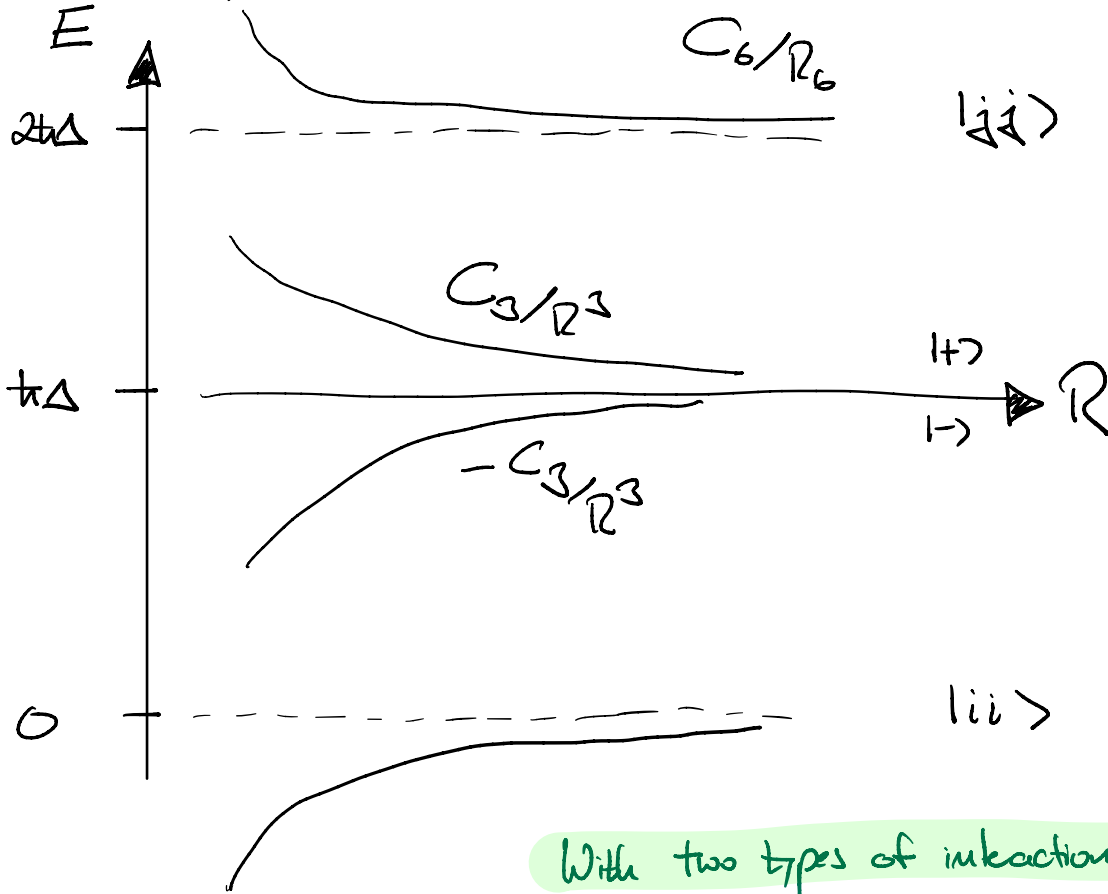 E
C₆/R₆
2ħΔ
|jj>
C₃/R³
|+>
ħΔ
R
|->
- C₃/R³
0
|ii>
With two types of interaction